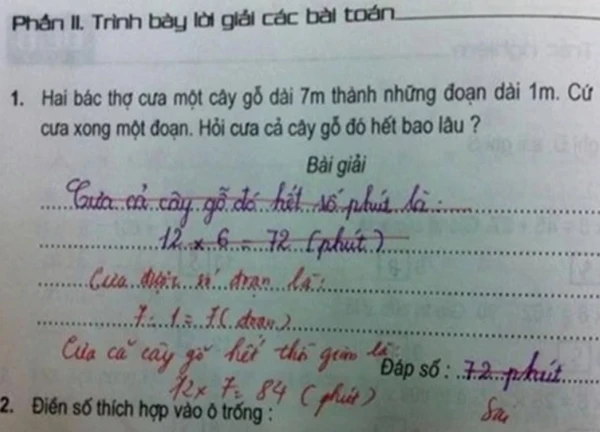 Phần II. Trình bày lời giải các bài toán
1. Hai bác thợ cưa một cây gỗ dài 7m thành những đoạn dài 1m. Cứ
cưa xong một đoạn. Hỏi cưa cả cây gỗ đó hết bao lâu ?
Bài giải
Cưa cả cây gỗ đó hết số phút là :
12 x 6 = 72 (phút)
Cưa được số đoạn là:
7 : 1 = 7 (đoạn)
Cưa cả cây gỗ hết thời gian là:
Đáp số : 72 phút
12 x 7 = 84 (phút)
Sai
2. Điền số thích hợp vào ô trống :